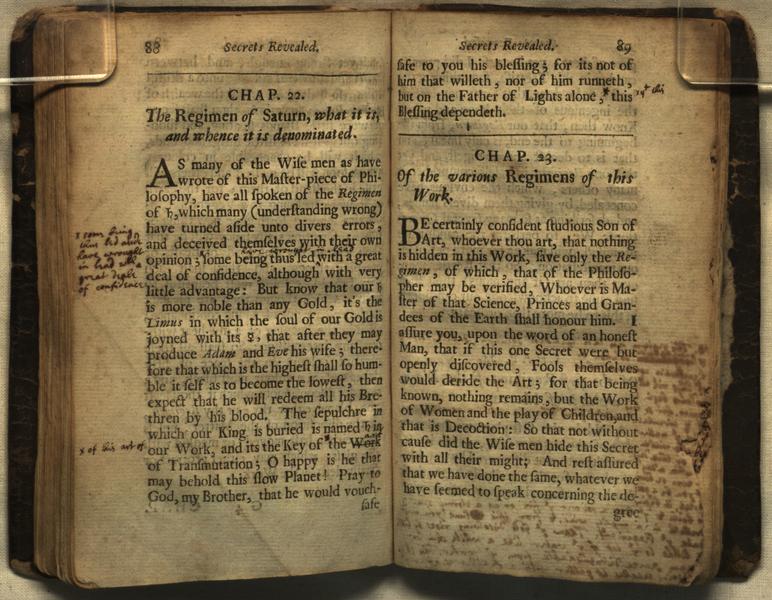 88 Secrets Revealed.
CHAP. 22.
The Regimen of Saturn, what it is,
and whence it is denominated.
AS many of the Wiſe men as have
wrote of this Maſter-piece of Phi-
loſophy, have all ſpoken of the Regimen
of ♄, which many (underſtanding wrong)
have turned aſide unto divers errors,
and deceived themſelves with their own
opinion; ſome being thus led with a great
deal of confidence, although with very
little advantage: But know that our ♄
is more noble than any Gold, it's the
Limus in which the ſoul of our Gold is
joyned with its ☿, that after they may
produce Adam and Eve his wife; there-
fore that which is the higheſt ſhall ſo hum-
ble it ſelf as to become the loweſt, then
expect that he will redeem all his Bre-
thren by his blood. The ſepulchre in
which our King is buried is named ♄ in
our Work, and its the Key of the Work
of Tranſmutation; O happy is he that
may behold this ſlow Planet! Pray to
God, my Brother, that he would vouch-
ſafe
x ſom being
thus led and
have wrought
in lead with a
great deale
of confidence
x of his art of
Secrets Revealed. 89
ſafe to you his bleſſing; for its not of
him that willeth, nor of him runneth,
but on the Father of Lights alone, this
Bleſſing dependeth.
CHAP. 23.
Of the various Regimens of this
Work.
BE certainly confident ſtudious Son of
Art, whoever thou art, that nothing
is hidden in this Work, ſave only the Re-
gimen, of which, that of the Philoſo-
pher may be verified, Whoever is Ma-
ſter of that Science, Princes and Gran-
dees of the Earth ſhall honour him. I
aſſure you, upon the word of an honeſt
Man, that if this one Secret were but
openly diſcovered, Fools themſelves
would deride the Art; for that being
known, nothing remains, but the Work
of Women and the play of Children, and
that is Decoction: So that not without
cauſe did the Wiſe men hide this Secret
with all their might; And reſt aſſured
that we have done the ſame, whatever we
have ſeemed to ſpeak concerning the de-
gree